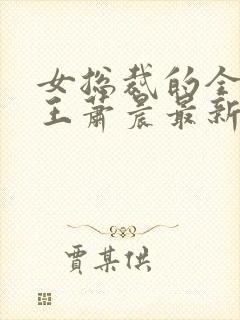 女总裁的全
王萧晨最新
贾某供